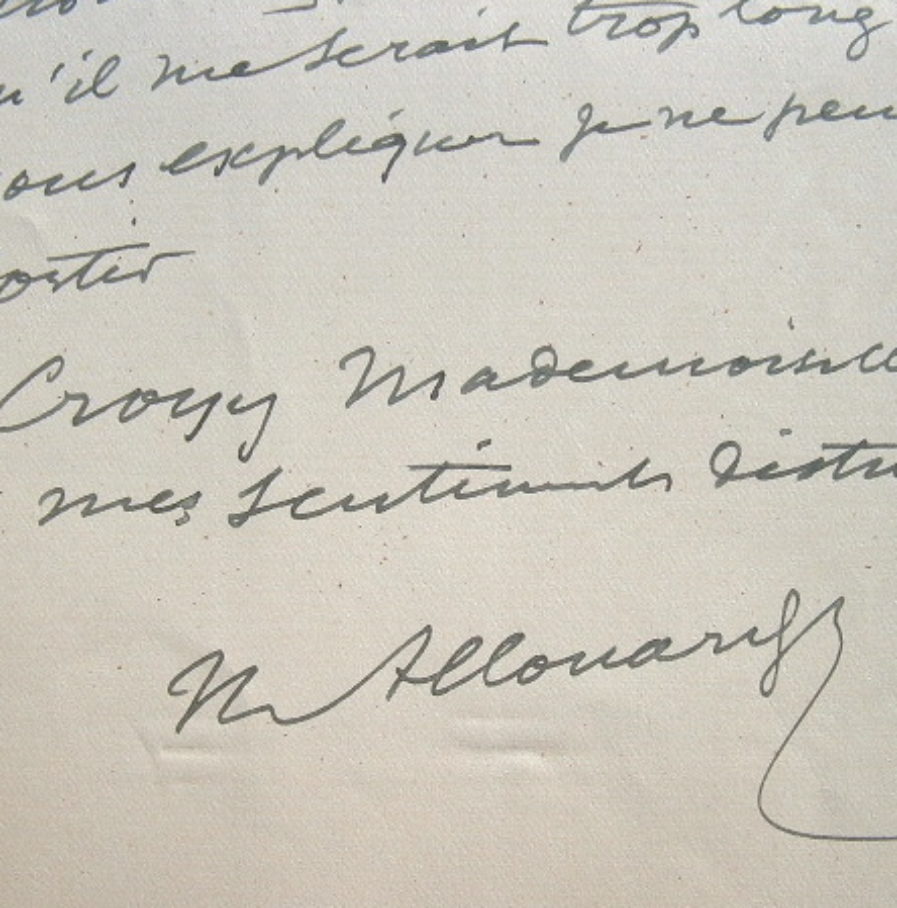 u'il me serait trop long
ous expliquer je ne peu
ortir
Croyez Mademoiselle
mes sentiments distin
M Allouard